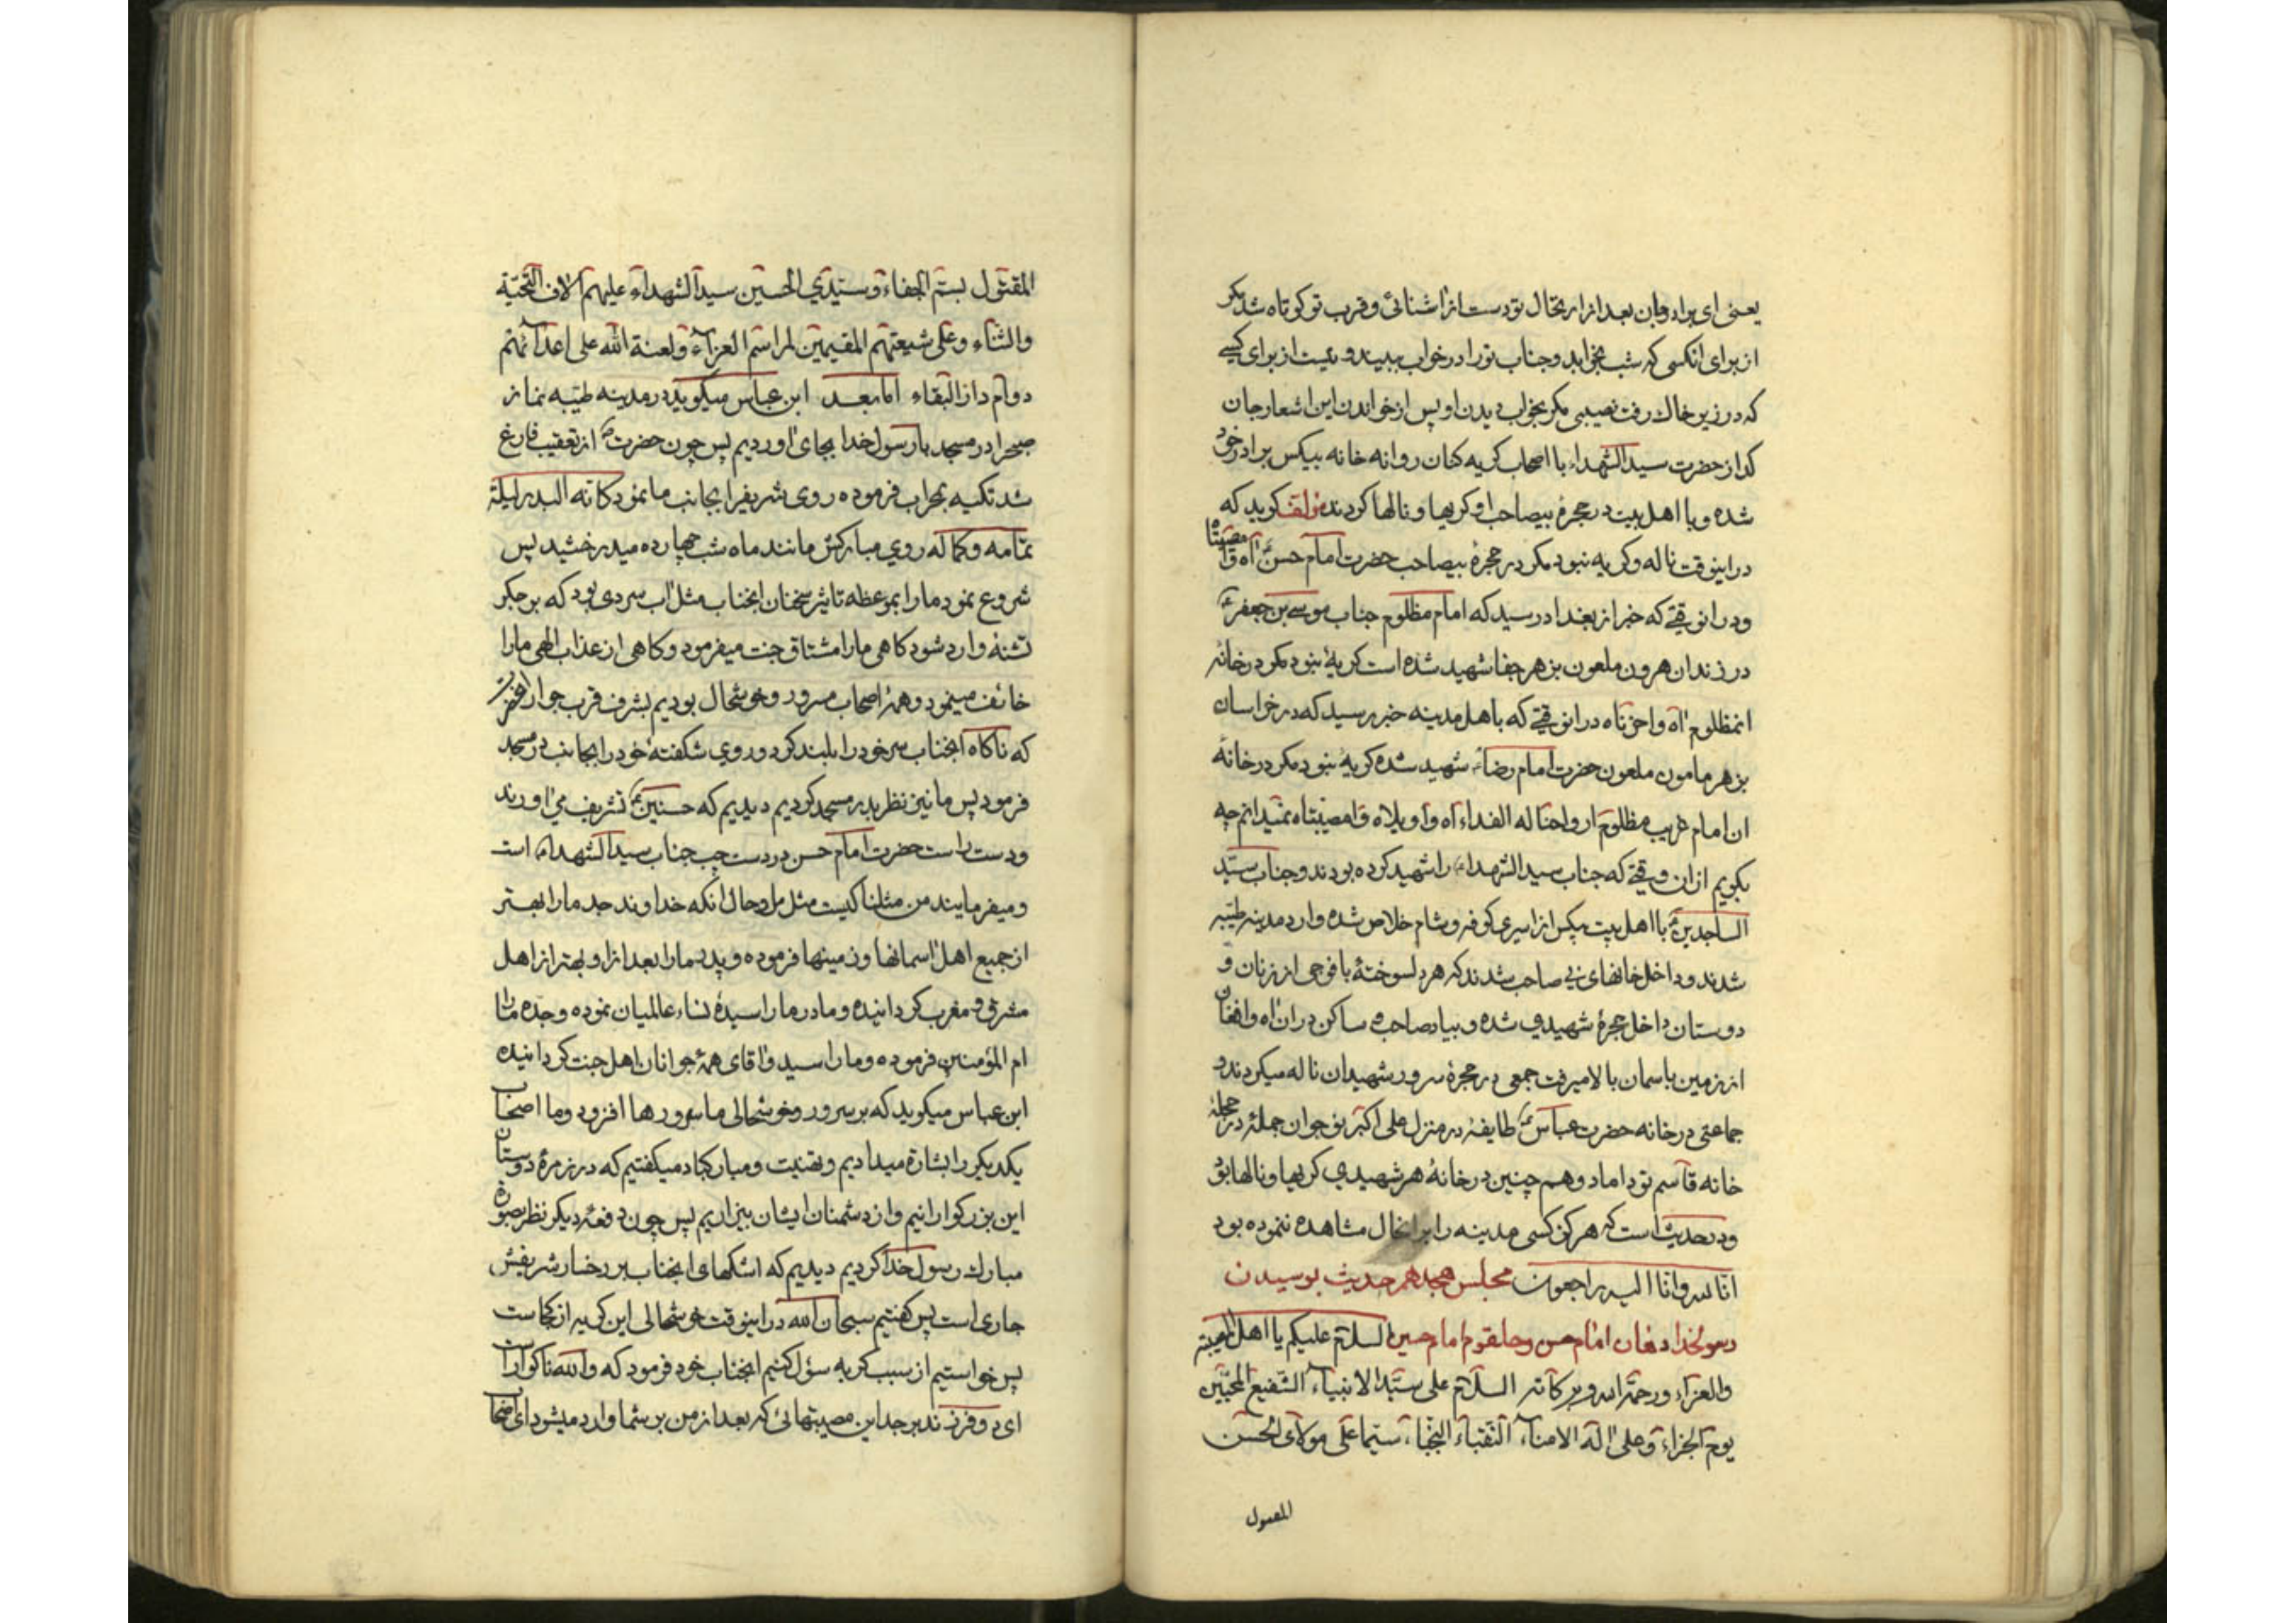 یعنی ای برادر جان بعد از ارتحال تو دست از اشنائی و قرب تو کوتاه شد مکر
از برای انکسی که شب بخوابد و جناب تو را در خواب ببیند و نیست از برای کسے
که در زیر خاک رفت نصیبی مکر بخواب دیدن او پس از خواندن این اشعار جان
کداز حضرت سید الشهداء با اصحاب کریه کنان روانه خانه بیکس برادر خود
شده و با اهل بیت در حجرهٔ بیصاحب او کریها و نالها کردند مؤلف کوید که
در اینوقت ناله و کریه نبود مکر در حجرهٔ بیصاحب حضرت امام حسن ع اه وا مصیبتاه
و در انوقتے که خبر از بغداد رسید که امام مظلوم جناب موسے بن جعفر ع
در زندان هرون ملعون بزهر جفا شهید شده است کریهٔ نبود مکر در خانه
انمظلوم اه واحزناه در انوقتے که باهل مدینه خبر رسید که در خراسان
بزهر مامون ملعون حضرت امام رضا ع شهید شده کریهٔ نبود مکر در خانهٔ
ان امام غریب مظلوم ارواحنا له الفداء اه واویلاه وامصیبتاه نمیدانم چه
بکویم از ان وقتے که جناب سید الشهداء ع را شهید کرده بودند و جناب سیّد
الساجدین ع با اهل بیت بیکس از اسیری کوفه و شام خلاص شده وارد مدینه طیبه
شدند و داخل خانهای بی صاحب شدند که هر دلسوختهٔ با فوجی از زنان و
دوستان داخل حجرهٔ شهیدی شده و بیاد صاحب و ساکن در ان اه و افغان
از زمین باسمان بالا میرفت جمعی در حجرهٔ سرور شهیدان ناله میکردند و
جماعتی در خانه حضرت عباس ع طایفهٔ در منزل علی اکبر نوجوان جملهٔ در حجلهٔ
خانه قاسم نو داماد و هم چنین در خانهٔ هر شهیدی کریها و نالها بود
و در حدیث است که هرکز کسی مدینه را بر انحال مشاهده ننموده بود
انا لله و انا الیه راجعون مجلس هجدهم حدیث بوسیدن
رسولخدا دهان امام حسن و حلقوم امام حسین السلام علیکم یا اهل المصیبة
والعزاء ورحمة الله وبرکاته السلام علی سیّد الانبیاء الشفیع المحبّین
یوم الجزاء وعلی اله الامناء النقباء النجباء سیّما علی مولای الحسن
المقتول
المقتول بسمّ الجفاء وسیّدي الحسین سید الشهداء علیهم الاف التحیّة
والثناء وعلی شیعتهم المقیمین لمراسم العزاء ولعنة الله علی اعدائهم
دوام دار البقاء اما بعد ابن عباس میکوید در مدینه طیّبه نماز
صبحرا در مسجد با رسول خدا بجای اوردیم پس چون حضرت ص از تعقیب فارغ
شد تکیه بمحراب فرموده روی شریفرا بجانب ما نمود کانه البدر لیلة
تمامه وکماله روي مبارکش مانند ماه شب چهارده میدرخشید پس
شروع نمود ما را بموعظه تاثیر سخنان انجناب مثل اب سردی بود که بر جکر
تشنه وارد شود کاهی ما را مشتاق جنت میفرمود و کاهی از عذاب الهی ما را
خائف مینمود و همهٔ اصحاب مسرور و خوشحال بودیم بشرف قرب جوار انحضرت
که ناکاه انجناب سر خود را بلند کرد و روي شکفتهٔ خود را بجانب در مسجد
فرمود پس ما نیز نظر بدر مسجد کردیم دیدیم که حسنین ع تشریف می اورند
و دست راست حضرت امام حسن در دست چپ جناب سید الشهداء است
و میفرمایند من مثلنا کیست مثل ما و حال انکه خداوند جد ما را بهتر
از جمیع اهل اسمانها و زمینها فرموده و پدر ما را بعد از او بهتر از اهل
مشرق و مغرب کردانیده و مادر ما را سیدهٔ نساء عالمیان نموده و جده ما را
ام المؤمنین فرموده و ما را سید و اقای همهٔ جوانان اهل جنت کردانیده
ابن عباس میکوید که بر سرور و خوشحالی ما سرورها افزود و ما اصحاب
یکدیکر را بشارة میدادیم و تهنیت و مبارکباد میکفتیم که در زمرهٔ دوستان
این بزرکوارانیم و از دشمنان ایشان بیزاریم پس چون دفعهٔ دیکر نظر بصورة
مبارک رسول خدا کردیم دیدیم که اشکهای انجناب بر رخسار شریفش
جاری است پس کفتیم سبحان الله در اینوقت خوشحالی این کریه از کجاست
پس خواستیم از سبب کریه سؤل کنیم انجناب خود فرمود که والله ناکوار است
ای دو فرزند بر جد این مصیبتهائی که بعد از من بر شما وارد میشود ای اصحاب